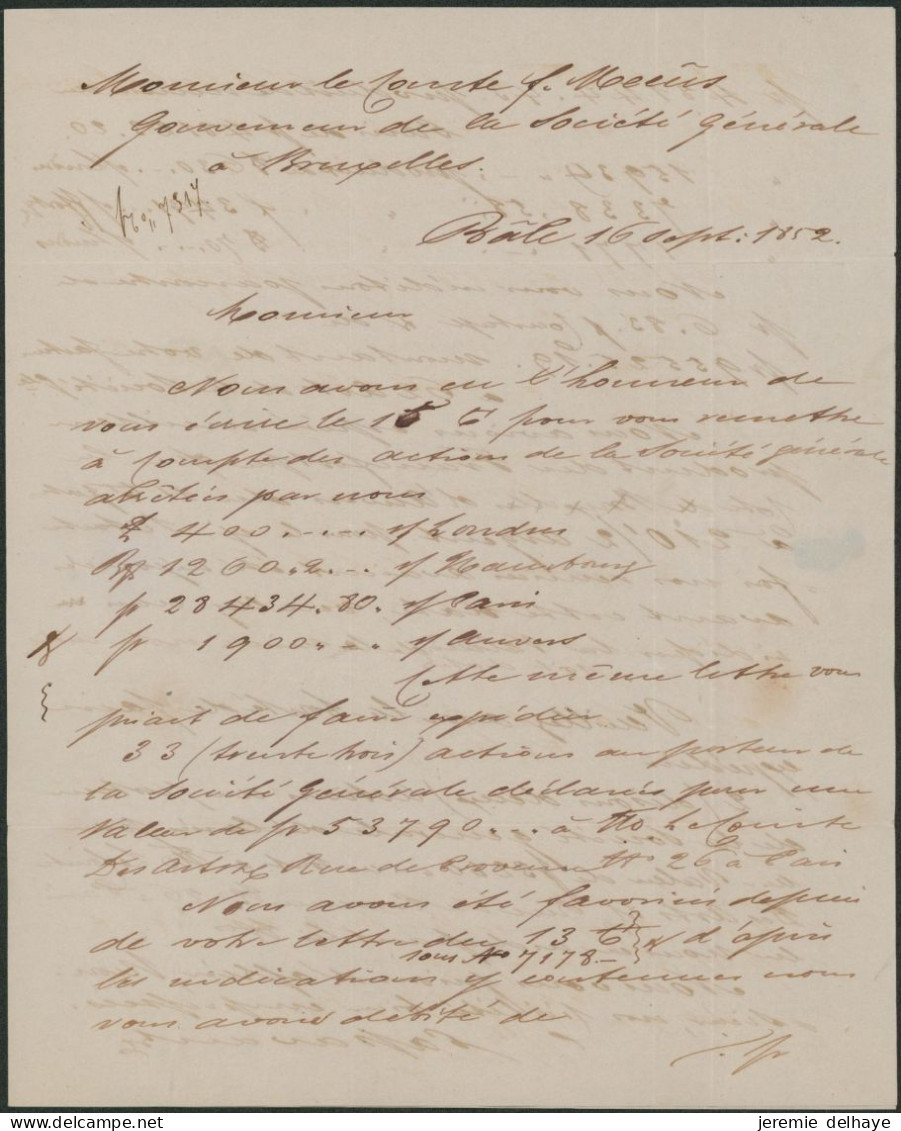 Monsieur le Comte f. Meeûs
Gouverneur de la Société Générale
à Bruxelles.
No. 7317
Bâle 16 Sept: 1852.
Monsieur
Nous avons eu l'honneur de
vous écrire le 15 Ct pour vous remettre
à Compte des actions de la Société générale
achetées par nous
£ 400.--.- s/ Londres
Bf 1260.,2.-. s/ Hambourg
fr 28434.80. s/ Paris
fr 1900.,-. s/ Anvers
Cette même lettre vous
priait de faire expédier
33 (trente trois) actions au porteur de
la Société Générale déclarées pour une
Valeur de fr 53790.--. à Mr. Le Comte
Des Rue de Provence No 26 à Paris
Nous avons été favorisés depuis
de votre lettre du 13 Ct d'après
sous No 7178-
les indications y contenues nous
vous avons débité de
./. fr
jeremie delhaye